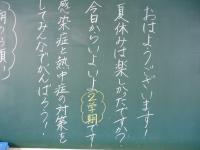 おはようございます！
夏休みは楽しかったですか？
今日からいよいよ2学期です
感染症と熱中症の対策を
してみんなでがんばろう！